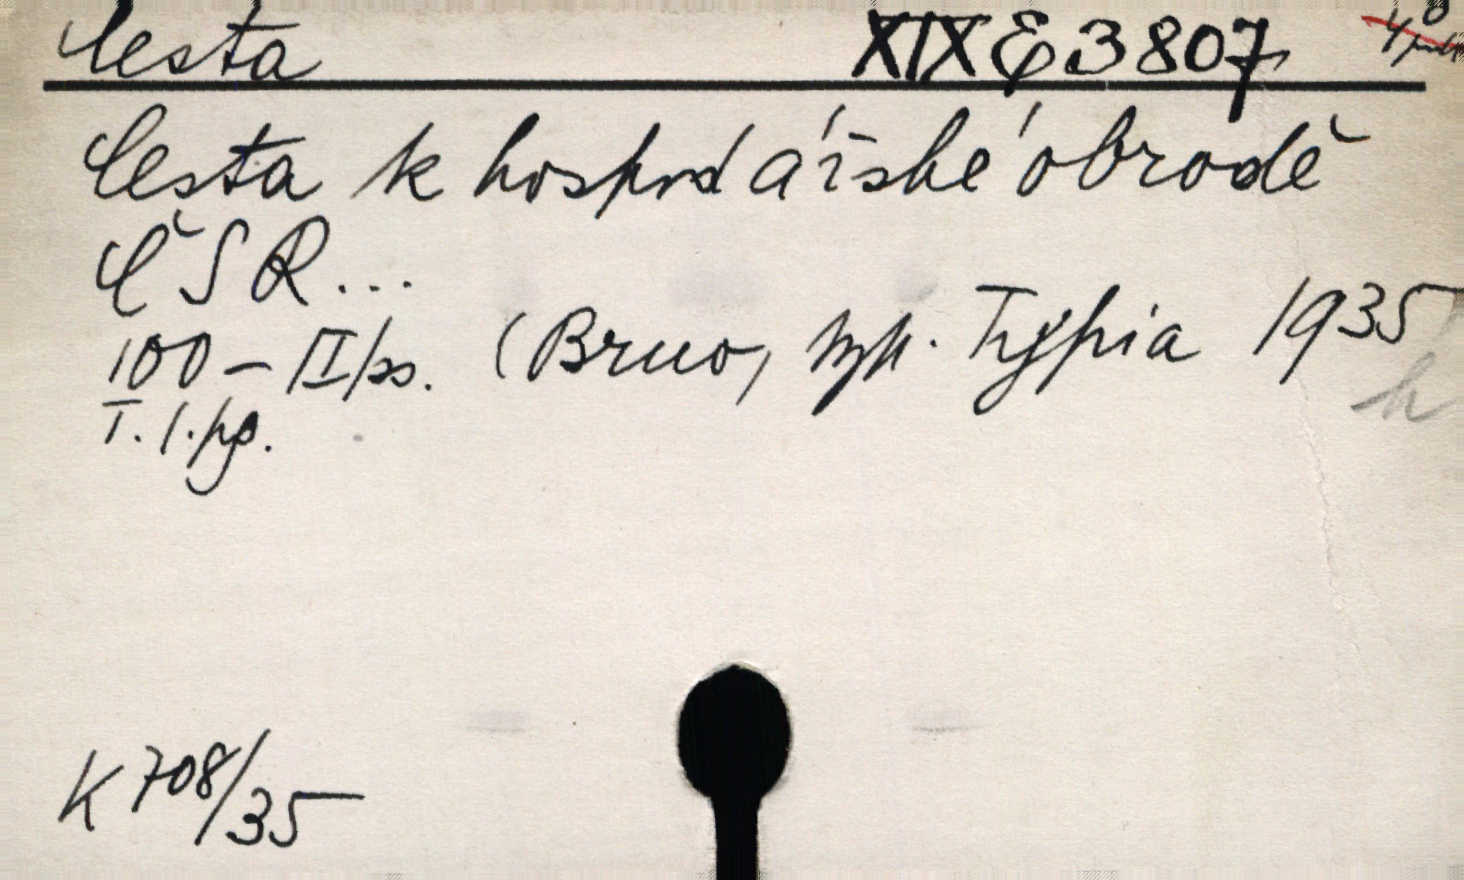 Cesta XIX E 3807 4°
Cesta k hospodářské obrodě
ČSR...
100 - II/ss. (Brno, typ. Typia 1935
T. 1. pg.
K 708/35